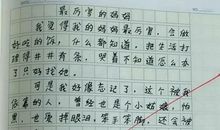 最厉害的妈妈
我觉得我的妈妈最厉害，会做
好吃的饭，什么都知道，把生活打
理得井井有条，哭着不知道怎么办
了只好找她。
可是我好像忘记了，这个被我
依靠的人，曾经也是个小姑娘，怕
黑，也爱掉眼泪，笨手笨脚，还会被